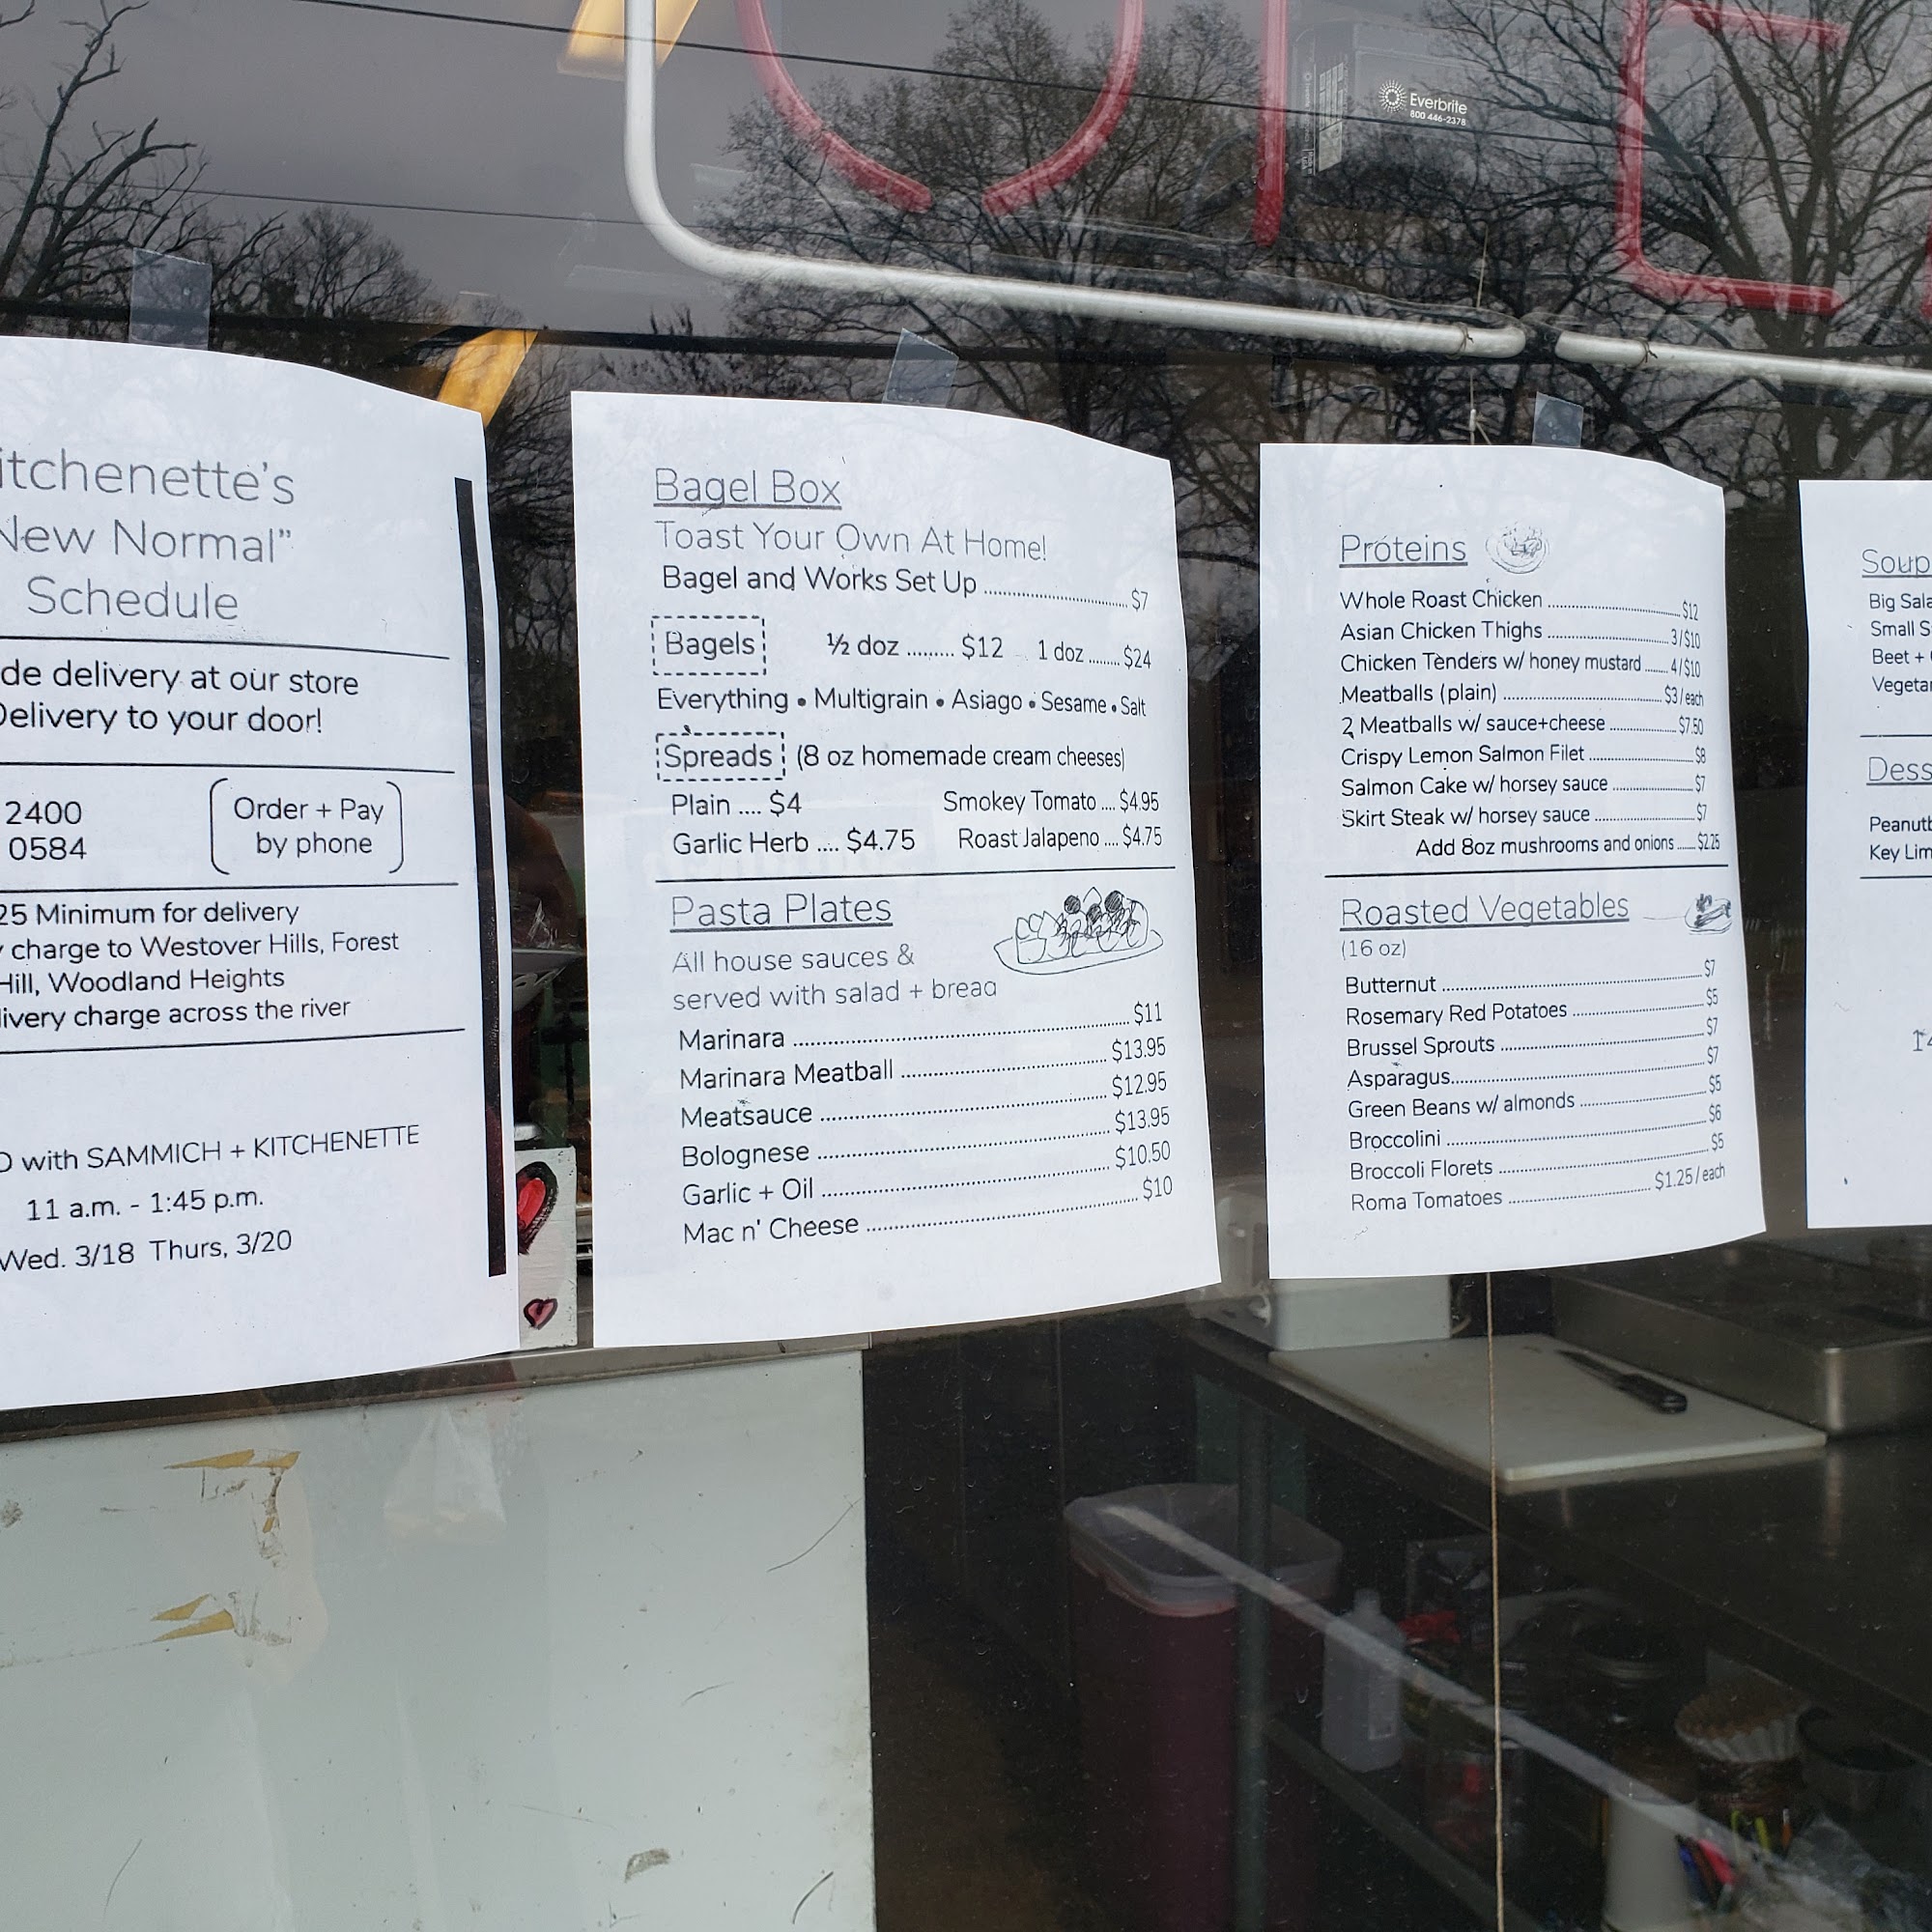 Everbrite
800 446-2378
itchenette's
New Normal"
Schedule
de delivery at our store
Delivery to your door!
2400
0584
Order + Pay
by phone
25 Minimum for delivery
charge to Westover Hills, Forest
Hill, Woodland Heights
livery charge across the river
with SAMMICH + KITCHENETTE
11 a.m. - 1:45 p.m.
Wed. 3/18 Thurs, 3/20
Bagel Box
Toast Your Own At Home!
Bagel and Works Set Up ........ $7
Bagels ½ doz ......... $12 1 doz ........ $24
Everything • Multigrain • Asiago • Sesame • Salt
Spreads (8 oz homemade cream cheeses)
Plain .... $4 Smokey Tomato .... $4.95
Garlic Herb .... $4.75 Roast Jalapeno .... $4.75
Pasta Plates
All house sauces &
served with salad + bread
Marinara ........ $11
Marinara Meatball ........ $13.95
Meatsauce ........ $12.95
Bolognese ........ $13.95
Garlic + Oil ........ $10.50
Mac n' Cheese ........ $10
Proteins
Whole Roast Chicken ........ $12
Asian Chicken Thighs ........ 3/$10
Chicken Tenders w/ honey mustard ........ 4/$10
Meatballs (plain) ........ $3/each
2 Meatballs w/ sauce+cheese ........ $7.50
Crispy Lemon Salmon Filet ........ $8
Salmon Cake w/ horsey sauce ........ $7
Skirt Steak w/ horsey sauce ........ $7
Add 8oz mushrooms and onions ...... $2.25
Roasted Vegetables
(16 oz)
Butternut ........ $7
Rosemary Red Potatoes ........ $5
Brussel Sprouts ........ $7
Asparagus........ $7
Green Beans w/ almonds ........ $5
Broccolini ........ $6
Broccoli Florets ........ $5
Roma Tomatoes ........ $1.25/each
Soup
Big Sala
Small S
Beet +
Vegetar
Dess
Peanutb
Key Lim